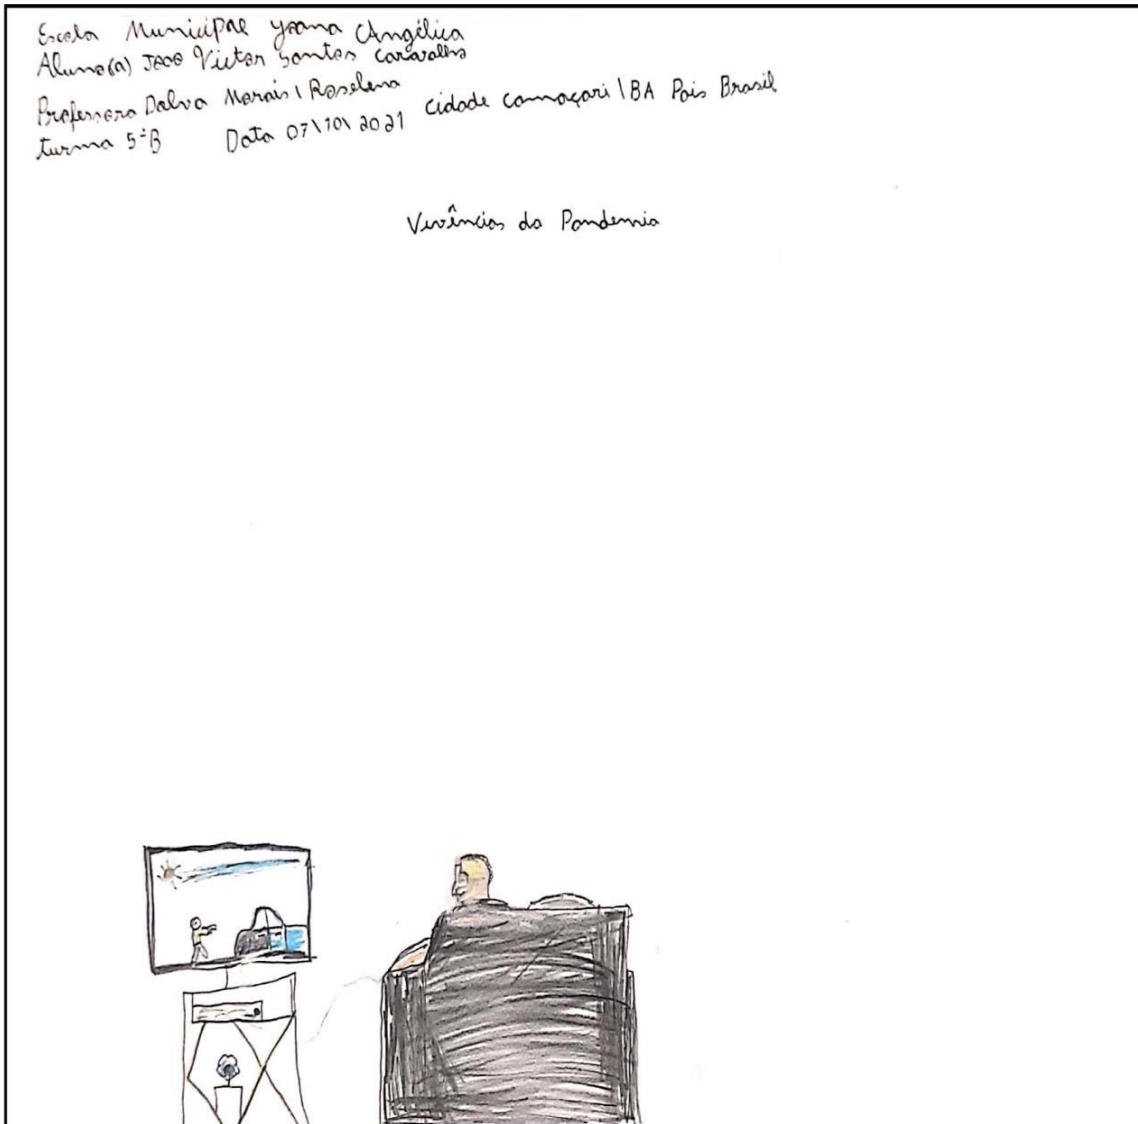 Escola Municipal Yoana Angélica
Aluno(a) João Victor Santos Caravalho
Professora Dalva Morais \ Roselena
turma 5ºB Data 07\10\2021 cidade camaçari \BA Pais Brasil
Vivências da Pandemia